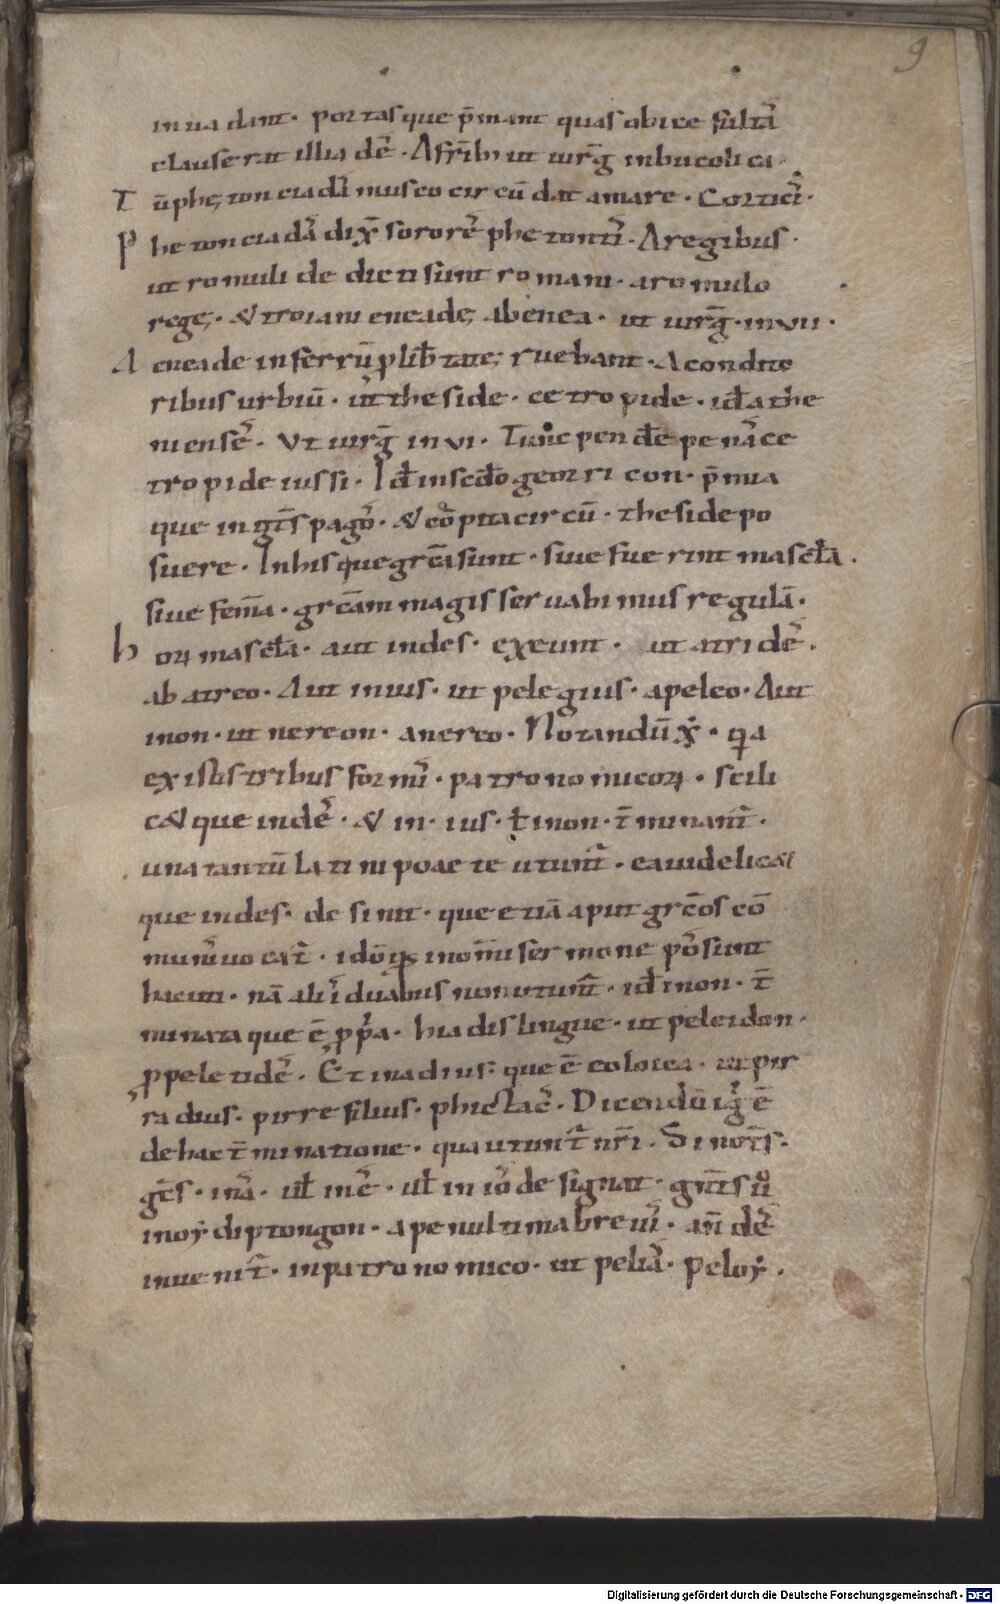 9
inuadant· portasque p̄mant quas obice fultā
clauserat illiadē· A fr̄ib; ut uirḡ in bucolica·
T ū phęton ciadā musco circū dat amare· Corticī·
P he ton cia dā dix̄ sororē phe tontī· A regibus·
ut romuli de dicti sunt romani· a romulo
rege;· & troiani eneadę ab enea· ut uirḡ· in vıı·
A eneade in ferrū p lib̄tate; ruebant· A condito
ribus urbiū· ut̄ theside· cetropide· id̄ athe
niensē· Ut uirḡ in vı· Tunc pende penā ce
tropide iussi· Id̄ in scdo georricon· p̄mia
que in gt̄s pagō· & cōpita circū· theside po
suere· In his que grēa sunt· siue fuerint mascl̄a·
siue fem̄a· grēam magis seruabimus regulā·
h oꝝ mascl̄a· aut in des· exeunt· ut atridē·
ab atreo· Aut in ius· ut pelegius· a peleo· Aut
in on· ut nereon· a nereo· Notandū x̄· qa
ex istis tribus formī· patronomicoꝝ· scili
c& que in dē· & in· ius· ł in on· t̄minant̄·
una tantū latini poaete utunt̄· ea uidelic&
que in des· desinit· que etiā aput grēos cō
munīuocat̄· idōiſ in om̄i sermone pōsunt
hac uti· nā aliī duabus non utunt̄· id̄ in on· t̄
minata que ē ꝓpa· hiadis lingue· ut peleidon·
ꝓ peletidē· Et in adius· que ē eoloica· ut pir
radius· pirre filius· phictacē· Dicendū iḡ ē
de hac t̄minatione· qua utunt̄ nr̄i· Si not̄s·
gēs· in ā· uł in ē· uł in iō designat· gnt̄s ů
in oy diptongon· a penultima breuī· an̄ dē
inuenit̄· in patronomico· ut peliā· peloy·
Digitalisierung gefördert durch die Deutsche Forschungsgemeinschaft - DFG